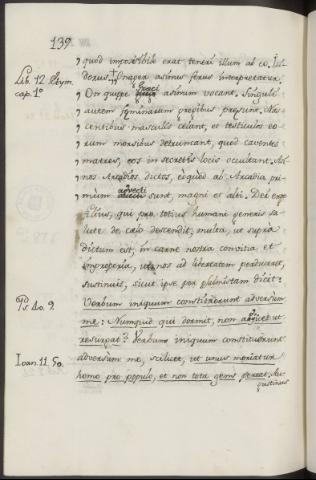 139.
quod impossibile erat teneri illum ab eo. Isi-
Lib. 12. Etym. cap. 1º
dorus: Onager asinus ferus interpretatur.
On quippe Graeci asinum vocant. Singuli
autem foeminarum gregibus praesunt. Nas-
centibus masculis zelant, et testiculos eo-
rum morsibus detruncant, quod caventes
matres, eos in secretis locis occultant. Asi-
nos Arcadios dictos, eo quod ab Arcadia pri-
mùm advecti sunt, magni et alti. Dei ergo
Filius, qui pro totius humani generis sa-
lute de caelo descendit, multa, ut suprà
dictum est, in carne nostra convitia et
improperia, ut nos ad libertatem perduceret,
sustinuit, sicut ipse per psalmistam dicit:
Ps. 40. 9.
Verbum iniquum constituerunt adversum
me: Numquid qui dormit, non adjiciet ut
resurgat? Verbum iniquum constituerunt
Ioan. 11. 50.
adversum me, scilicet, ut unus moriatur
homo pro populo, et non tota gens pereat. Au-
gustinus